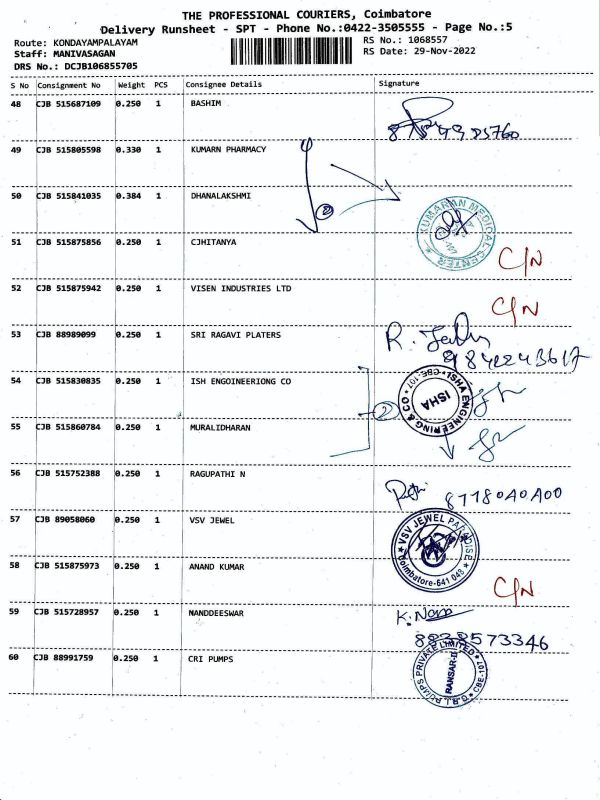 THE PROFESSIONAL COURIERS, Coimbatore
Delivery Runsheet - SPT - Phone No.:0422-3505555 - Page No.:5
Route: KONDAYAMPALAYAM RS No.: 1068557
Staff: MANIVASAGAN RS Date: 29-Nov-2022
DRS No.: DCJB106855705
S No Consignment No Weight PCS Consignee Details Signature
48 CJB 515687109 0.250 1 BASHIM
49 CJB 515805598 0.330 1 KUMARN PHARMACY
50 CJB 515841035 0.384 1 DHANALAKSHMI
2
KUMARAN MEDICAL CENTER
51 CJB 515875856 0.250 1 CJHITANYA
C/N
52 CJB 515875942 0.250 1 VISEN INDUSTRIES LTD
C/N
53 CJB 88989099 0.250 1 SRI RAGAVI PLATERS
9842243617
54 CJB 515830835 0.250 1 ISH ENGOINEERIONG CO
ISHA ENGINEERING & CO CBE-107
ISHA
2
55 CJB 515860784 0.250 1 MURALIDHARAN
56 CJB 515752388 0.250 1 RAGUPATHI N
57 CJB 89058060 0.250 1 VSV JEWEL
VSV JEWEL PARADISE
Coimbatore-641 048
58 CJB 515875973 0.250 1 ANAND KUMAR
C/N
59 CJB 515728957 0.250 1 NANDDEESWAR
8838573346
60 CJB 88991759 0.250 1 CRI PUMPS
C.R.I. PUMPS PRIVATE LIMITED CBE-107